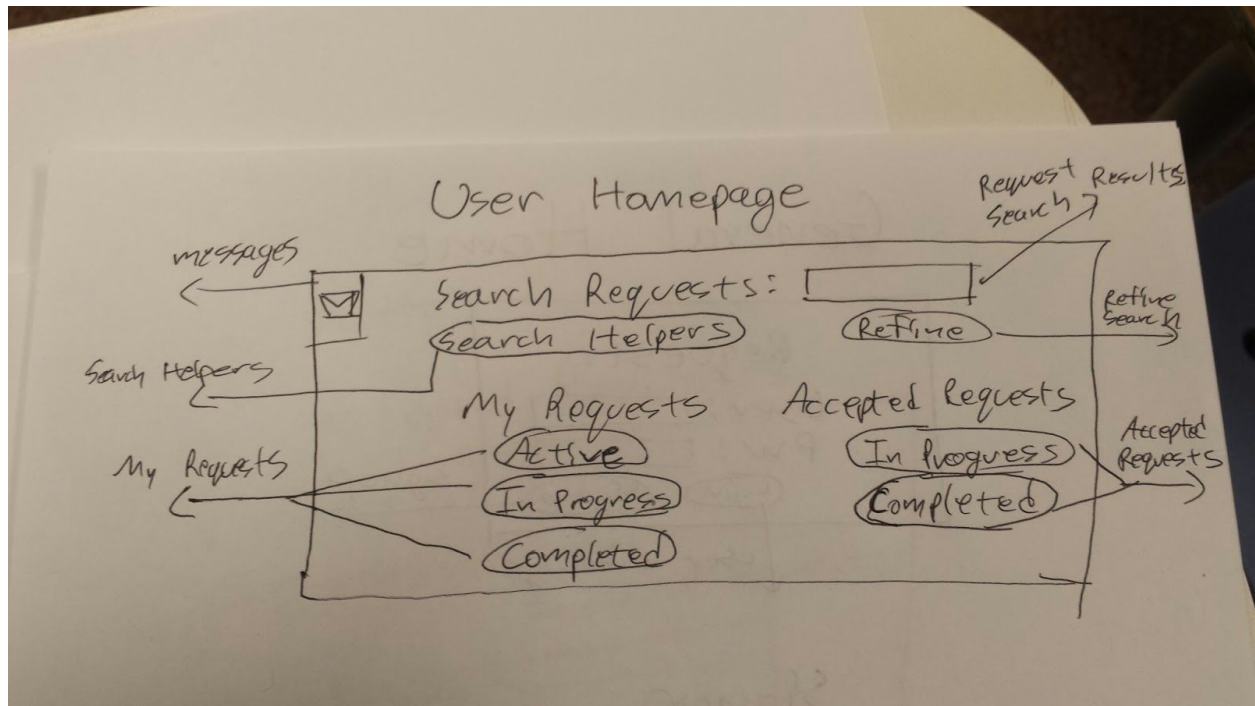 User Homepage
Request Search Results
messages
Search Requests:
Search Helpers
Refine
Refine Search
Search Helpers
My Requests
Accepted Requests
Active
In Progress
Completed
In Progress
Completed
My Requests
Accepted Requests